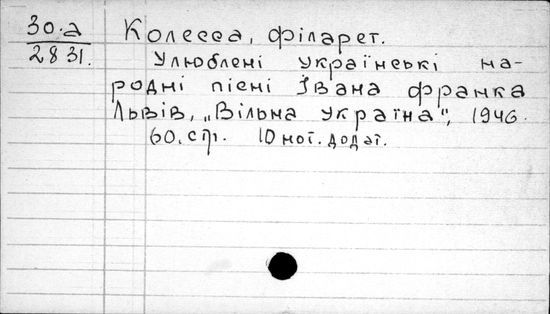 30.а
2831.
Колесса, Філарет.
Улюблені українські на-
родні пісні Івана Франка
Львів, „Вільна Україна", 1946.
60. стр. 10 нот. додат.